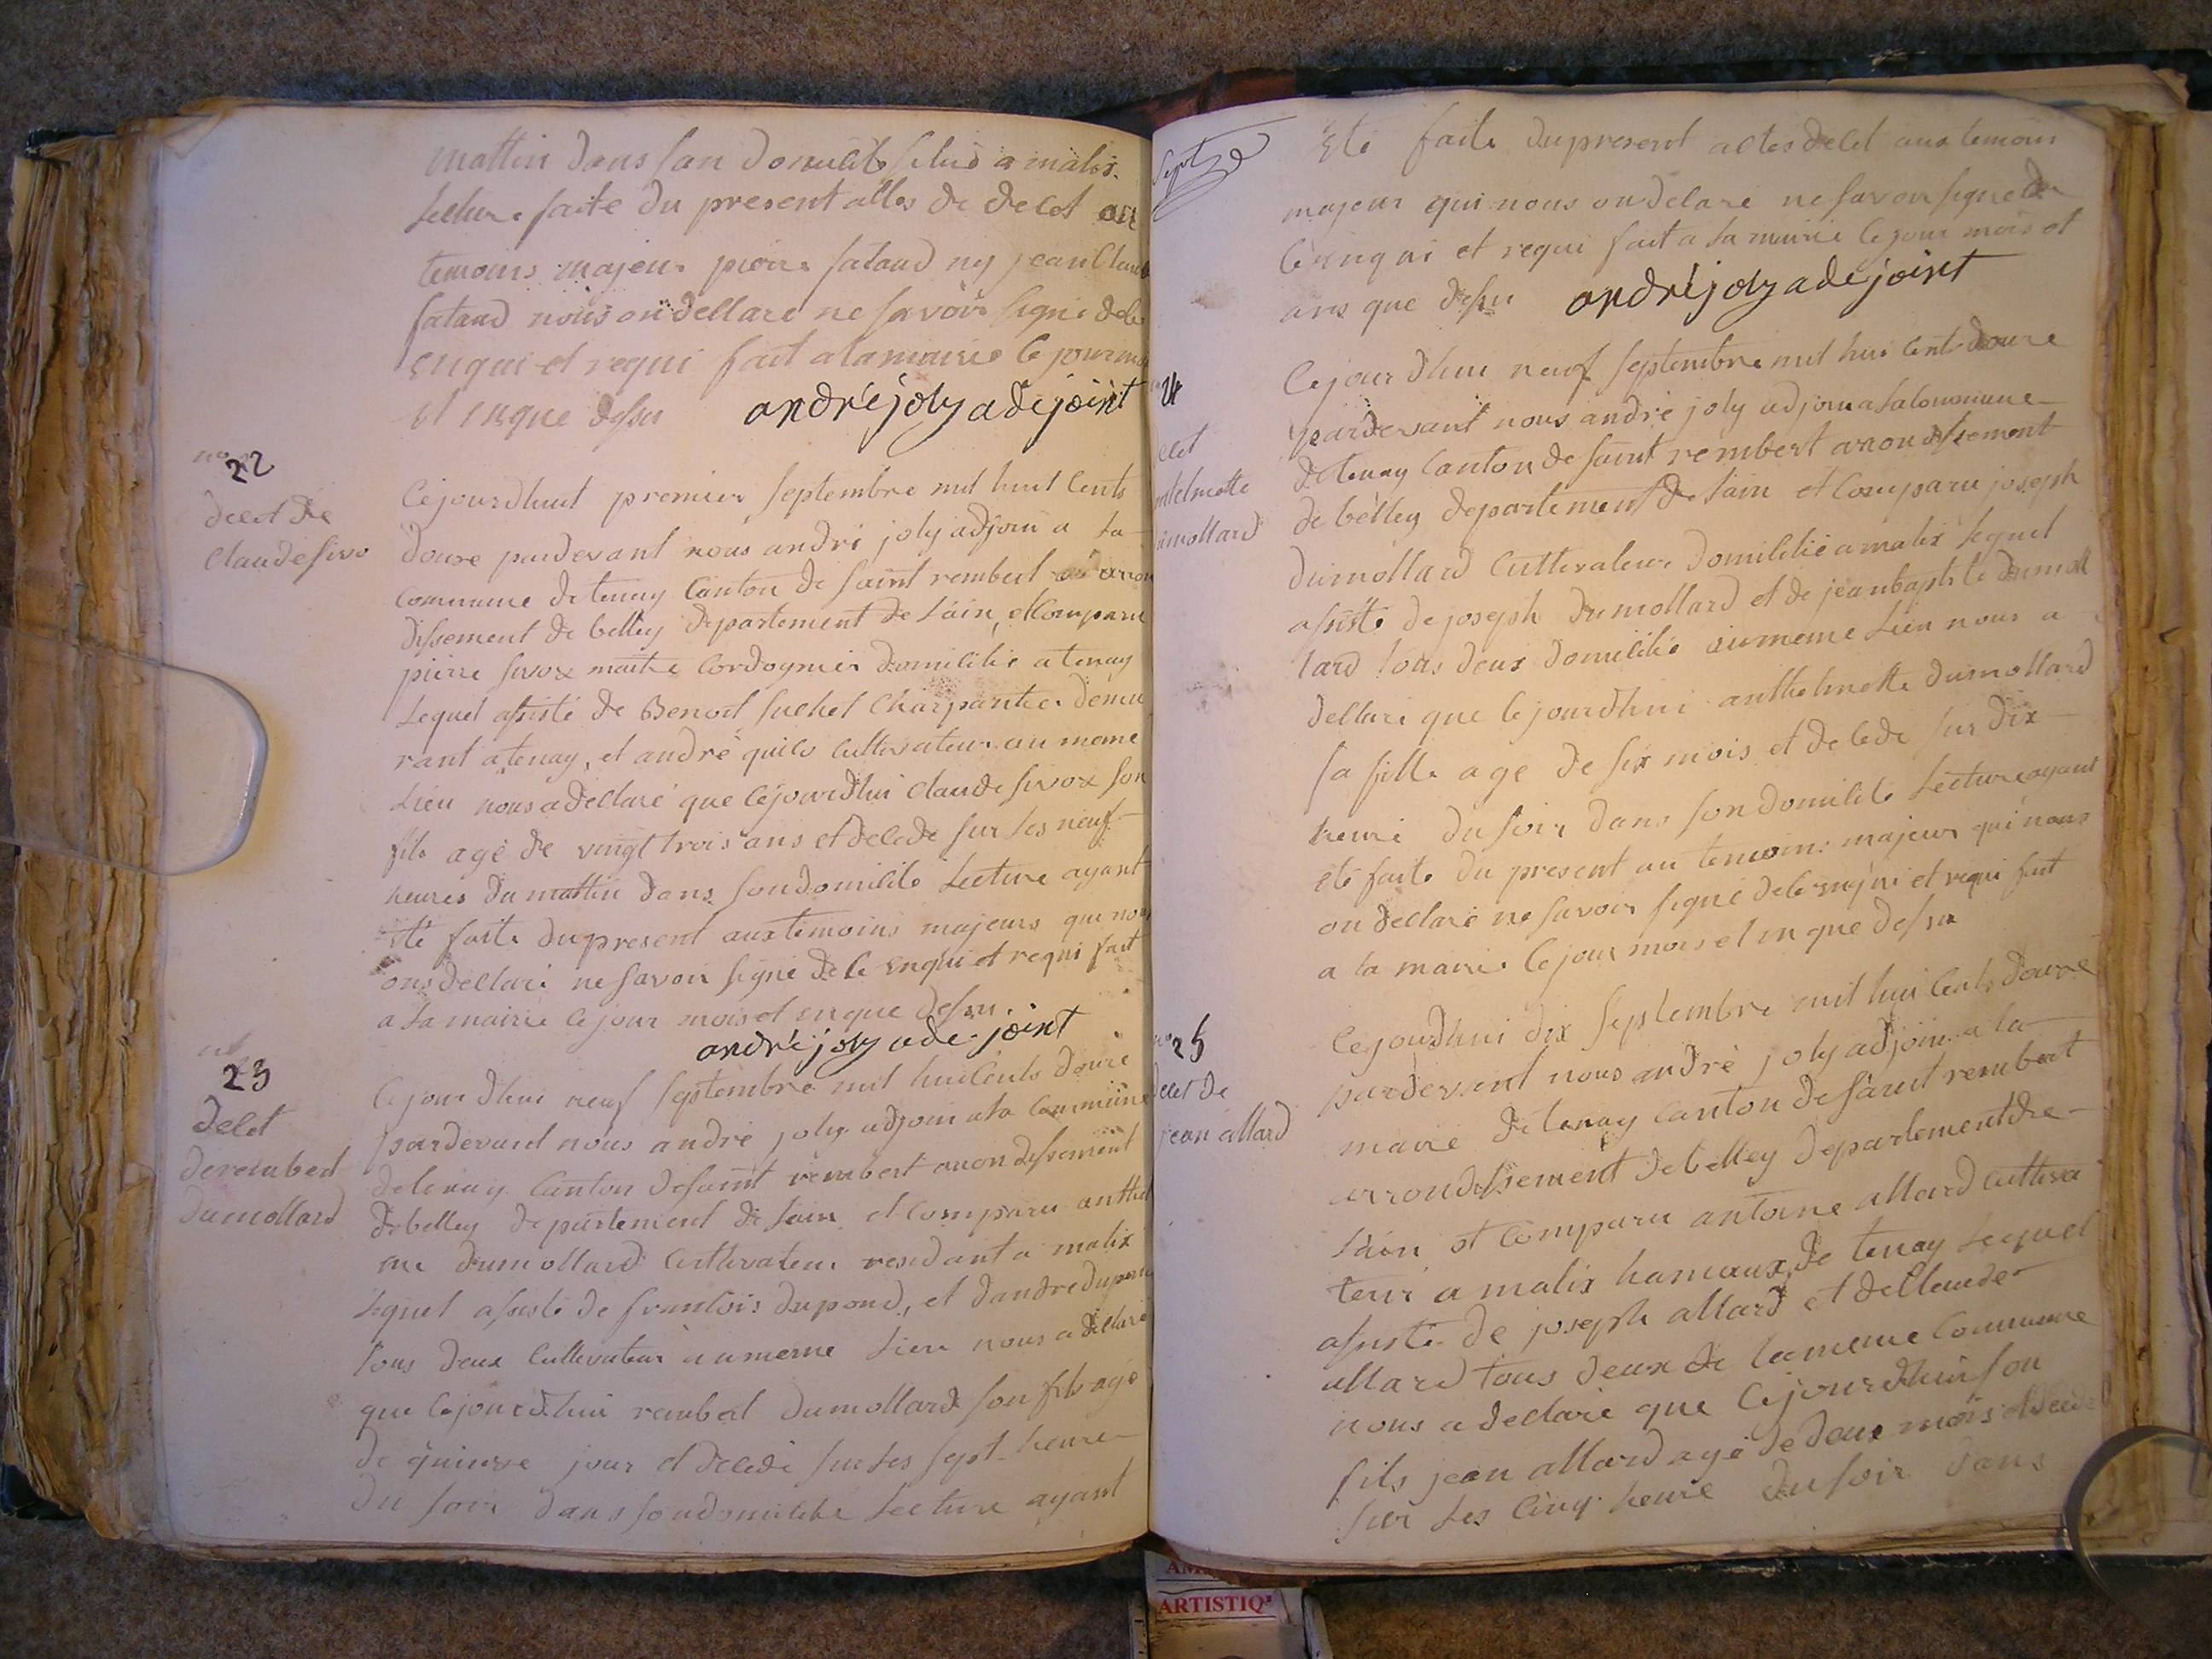 mattin dans son domicile a malix
lecture faite du present attes de decet
temoins majeur pierre fataud ny jean Claude
fataud nous on dellare ne savoir signe dele
enqui et requi fait a la mairie le jour
et enque dessu andré joly adejoint
no 22
decet de
Claude sivo
Cejourdhuit premier septembre mil huit Cents
doure pardevant nous andré joly adjoin a la
commune de tenay Canton de saint rembert aron
dissement de belley departement de lain, et Comparu
pierre sivox maitre Cordognier domicilié a tenay
Lequel assisté de Benoit suchet Charpantier demeu
rant a tenay, et andré cultivateur au meme
Lieu nous a dellaré que Cejourdhui Claude sivox son
fils agé de vingt trois ans et decede sur les neuf
heures du mattin dans son domicile Lecture ayant
été faite du present aux temoins majeurs qui nous
ons dellaré ne savoir signé de le enqui et requi fait
a la mairie le jour mois et enque dessu.
andré joly ade joint
no 23
decet
de rembert
dumollard
Cejour dhui neuf septembre mil hui Cents doure
pardevant nous andré joly adjoin a la Commune
de tenay Canton de saint rembert arondissement
de belley departement de lain et Comparu anthel
me dumollard Cultivateur residant a malix
Lequel assisté de francois dupond, et dandre
tous deux Cultivateur au meme Lieu nous a dellaré
que Cejourdhui rembert dumollard son fils agé
de quinze jour et decedé sur les sept heure
du soir dans son domicile Lecture ayant
Septre
Eté faite du present actes decet aux temoin
majeur qui nous on delaré ne savoir signe de
le enqui et requi fait a la mairie le jour mois et
ans que dessu andré joly adejoint
24
decet
antelmette
dumollard
Cejour dhui neuf septembre mil hui Cent doure
pardevant nous andré joly adjoin a la Commune
de tenay Canton de saint rembert arondissement
de bèlley departement de lain et Comparu joseph
dumollard Cultivateur domicilié a malix Lequel
assisté de joseph dumollard et de jean baptiste dumol
lard tous deux domicilié au meme Lieu nous a
dellaré que Cejourdhui anthelmette dumollard
sa fille age de six mois et decede sur dix
heure du soir dans son domicile Lecture ayant
été faite du present au temoin majeur qui nous
on dellaré ne savoir signé dele enqui et requi fait
a la mairie le jour mois et enque dessu
no 25
decet de
jean allard
Cejourdhui dix septembre mil hui Cents doure
pardevant nous andré joly adjoin a la
mairie de tenay Canton de saint rembert
arrondissement de belley departement de
lain et Comparu antoine allard Cultiva
teur a malix hameaux de tenay Lequel
assisté de joseph allard et de Claude
allard tous deux de la meme Commune
nous a dellaré que Cejourdhui son
fils jean allard agé de deux mois
sur les Cinq heure du soir dans
ARTISTIQ